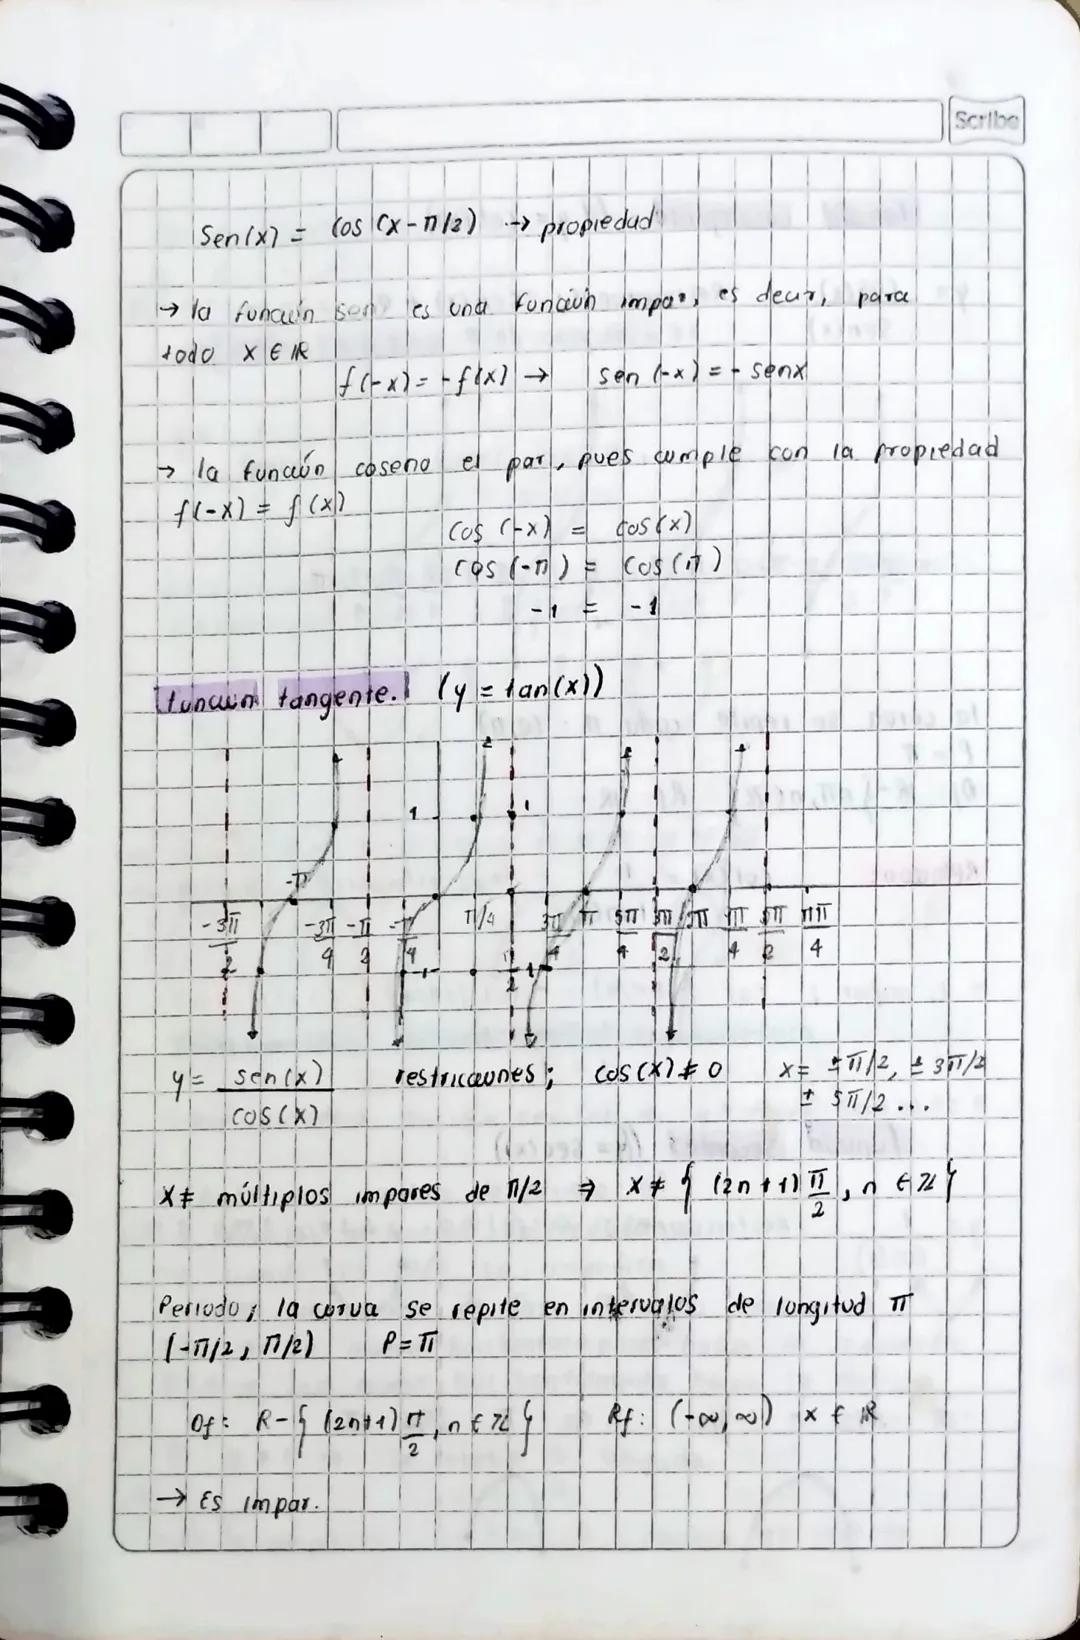 Scribe
Sen(x) = Cos (x - π/2) → propiedad
→ la función seno es una función impar, es decir, para
todo x ∈ IR
f(-x) = -f(x) → sen (-x) = - senx
→ la función coseno es par, pues cumple con la propiedad
f(-x) = f(x)
Cos (-x) = Cos(x)
Cos (-π) = Cos(π)
-1 = -1
función tangente. (y = tan(x))
1 1
-π
-3π/2 -3π/4 -π/2 -π/4 π/4 π/2 3π/4 π 5π/4 3π/2 2π 9π/4 5π/2 11π/4
-1 -1
y = sen(x)/cos(x) restricciones; cos(x) ≠ 0 x = ±π/2, ± 3π/2
± 5π/2 ...
x ≠ múltiplos impares de π/2 ⇒ x ≠ { (2n+1) π/2, n ∈ ℤ }
Periodo; la curva se repite en intervalos de longitud π
(-π/2, π/2) P = π
Df: R - { (2n+1) π/2, n ∈ ℤ } Rf: (-∞, ∞) x ∈ IR
→ Es impar.